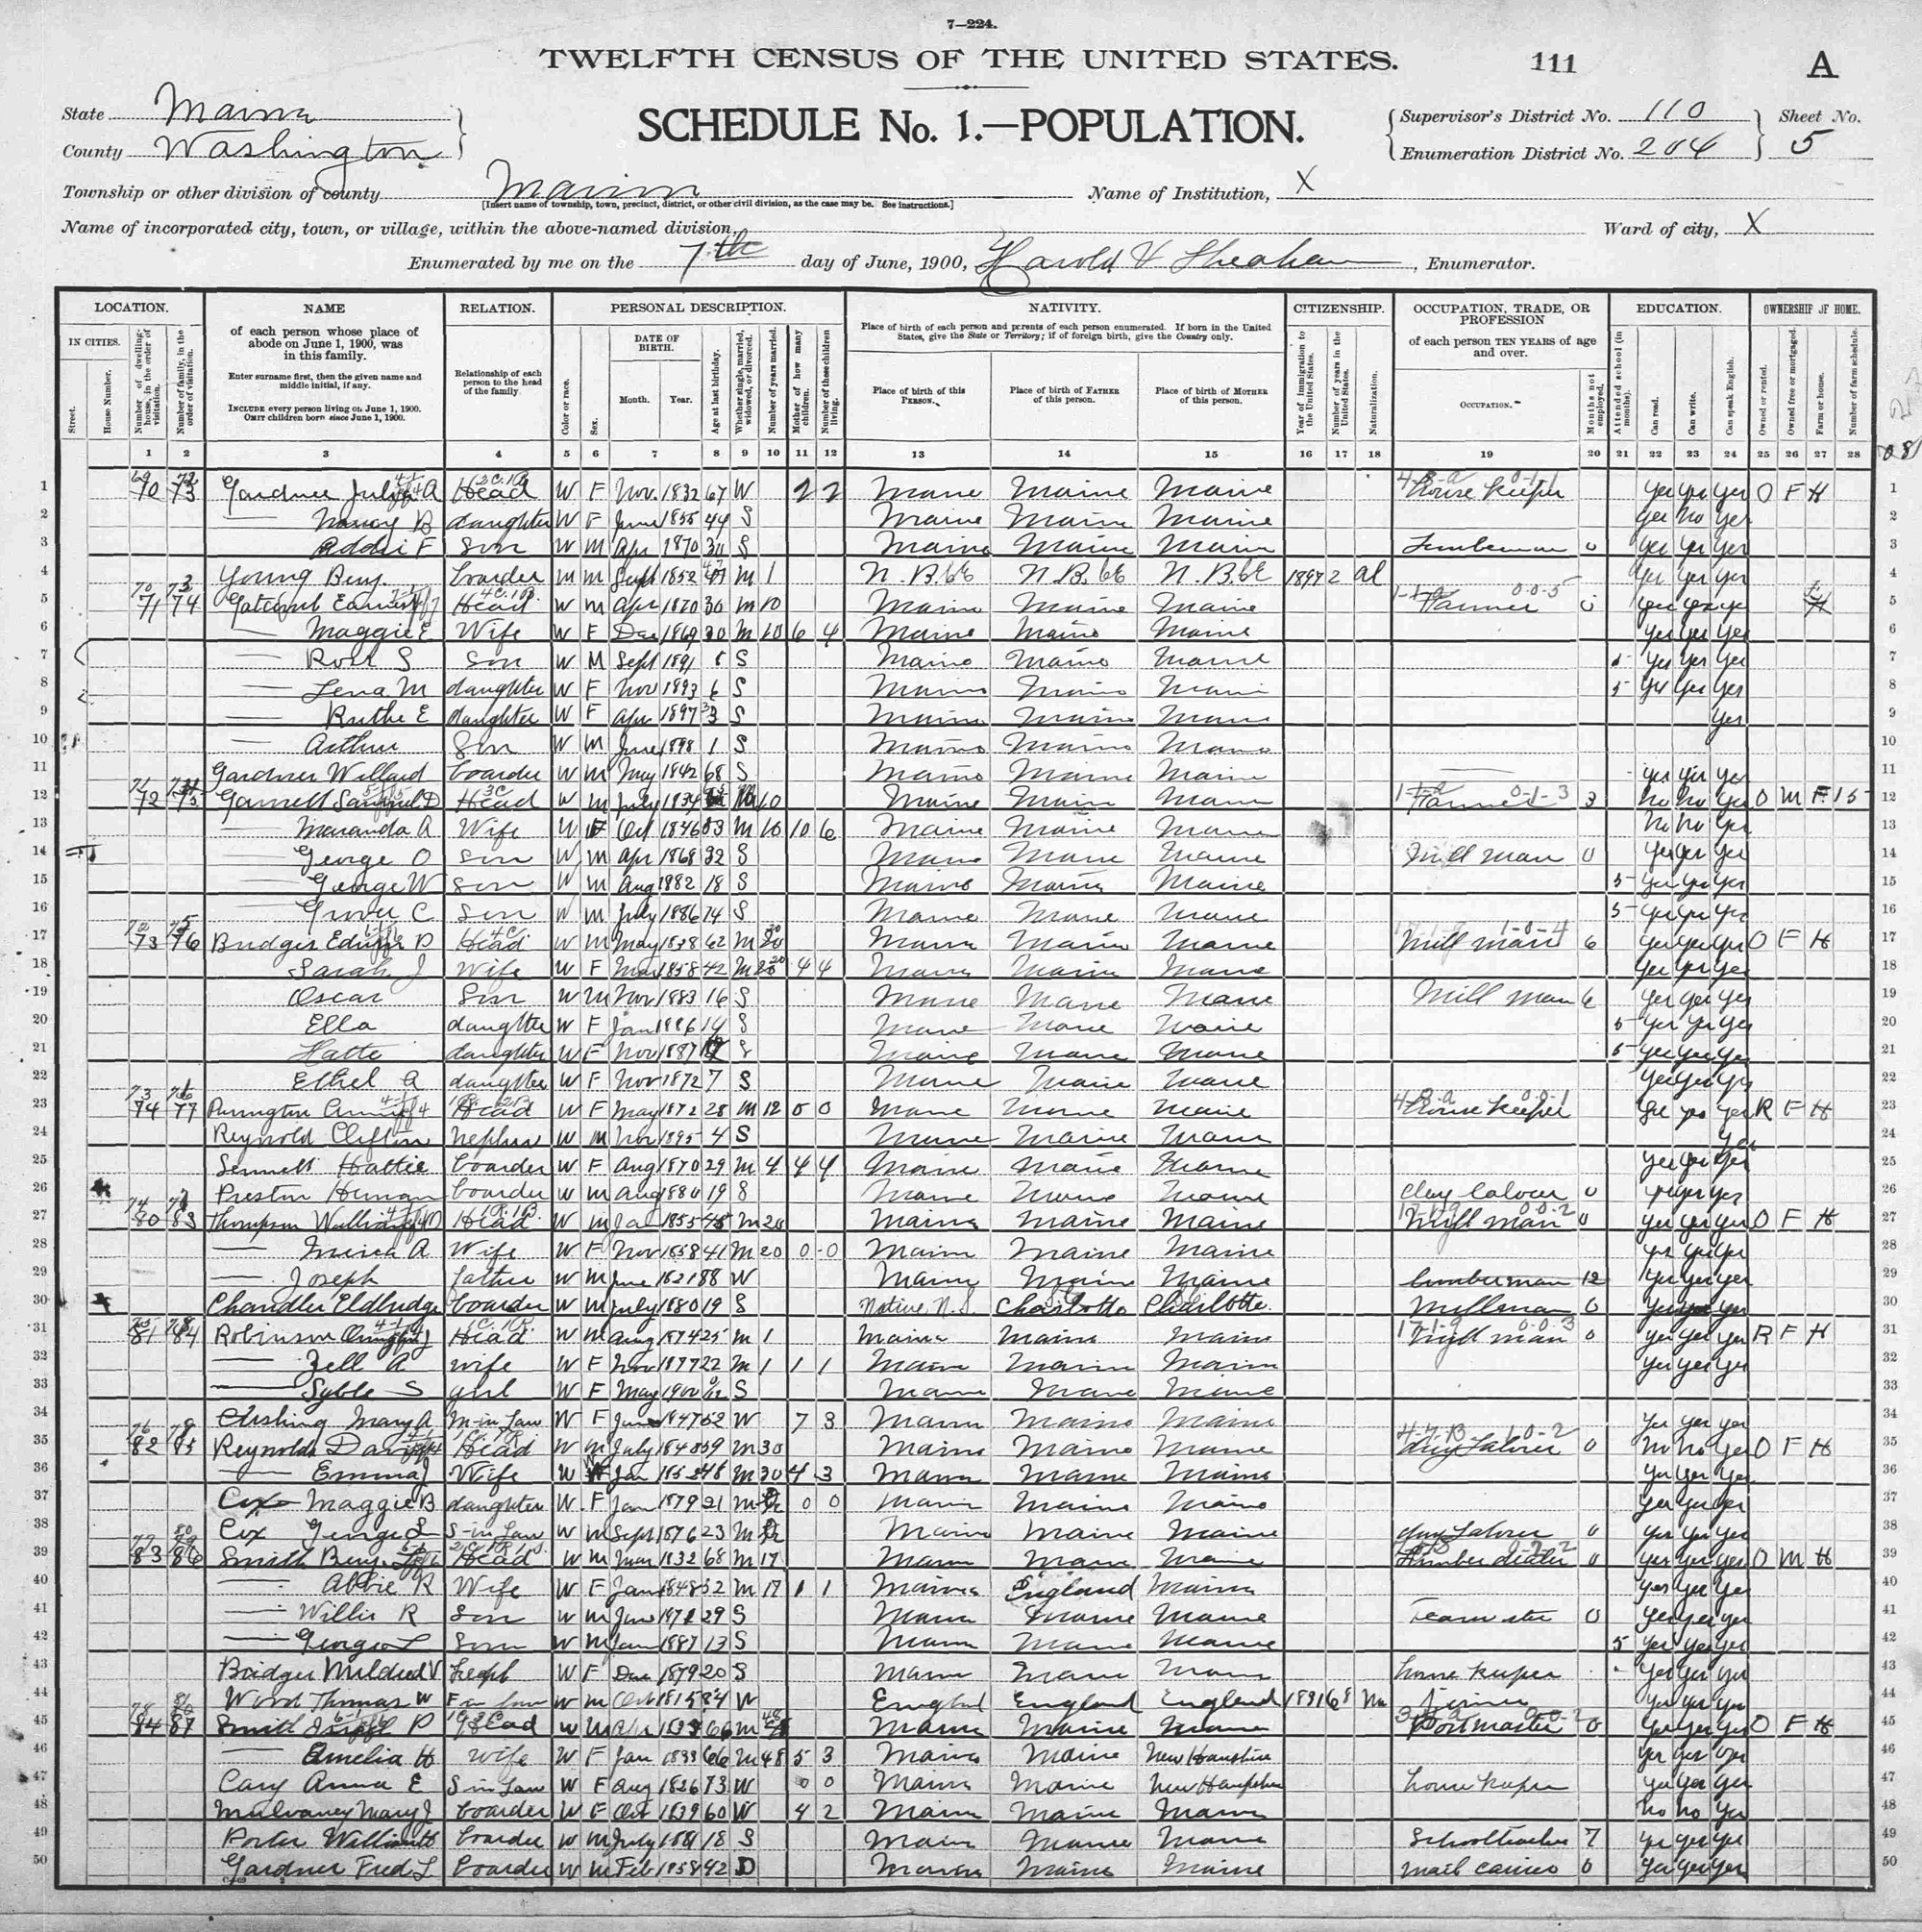 7—224.
TWELFTH CENSUS OF THE UNITED STATES. 111 A
State Maine
SCHEDULE No. 1.—POPULATION.
Supervisor's District No. 110 Sheet No.
County Washington
Enumeration District No. 204 5
Township or other division of county Marion Name of Institution, X
[Insert name of township, town, precinct, district, or other civil division, as the case may be. See instructions.]
Name of incorporated city, town, or village, within the above-named division, Ward of city, X
Enumerated by me on the 7th day of June, 1900, Harold Sheahan, Enumerator.
LOCATION. NAME RELATION. PERSONAL DESCRIPTION. NATIVITY. CITIZENSHIP. OCCUPATION, TRADE, OR PROFESSION EDUCATION. OWNERSHIP OF HOME.
IN CITIES.
Street.
House Number.
Number of dwelling-house, in the order of visitation.
Number of family, in the order of visitation.
of each person whose place of abode on June 1, 1900, was in this family.
Enter surname first, then the given name and middle initial, if any.
INCLUDE every person living on June 1, 1900.
OMIT children born since June 1, 1900.
Relationship of each person to the head of the family.
Color or race.
Sex.
DATE OF BIRTH.
Month. Year.
Age at last birthday.
Whether single, married, widowed, or divorced.
Number of years married.
Mother of how many children.
Number of these children living.
Place of birth of each person and parents of each person enumerated. If born in the United States, give the State or Territory; if of foreign birth, give the Country only.
Place of birth of this PERSON.
Place of birth of FATHER of this person.
Place of birth of MOTHER of this person.
Year of immigration to the United States.
Number of years in the United States.
Naturalization.
of each person TEN YEARS of age and over.
OCCUPATION.
Months not employed.
Attended school (in months).
Can read.
Can write.
Can speak English.
Owned or rented.
Owned free or mortgaged.
Farm or home.
Number of farm schedule.
1 2 3 4 5 6 7 8 9 10 11 12 13 14 15 16 17 18 19 20 21 22 23 24 25 26 27 28
1 70 73 Gardner A Head W F Nov. 1832 67 W 2 2 Maine Maine Maine House Keeper yes yes yes O F H 1
2 Nancy B daughter W F June 1855 44 S Maine Maine Maine yes no yes 2
3 Addie F Son W M Apr 1870 30 S Maine Maine Maine Lumberman 0 yes yes yes 3
4 Young Benj. boarder M M Sept 1852 47 M 1 N.B. N.B. N.B. 1897 2 al yes yes yes 4
5 71 74 Head W M Apr 1870 30 M 10 Maine Maine Maine Farmer 0 yes yes yes 5
6 Maggie E Wife W F Dec 1869 30 M 10 6 4 Maine Maine Maine yes yes yes 6
7 Ross S Son W M Sept 1891 8 S Maine Maine Maine 5 yes yes yes 7
8 Lena M daughter W F Nov 1893 6 S Maine Maine Maine 5 yes yes yes 8
9 Ruthe E daughter W F Apr 1897 3 S Maine Maine Maine yes 9
10 Arthur Son W M June 1898 1 S Maine Maine Maine 10
11 Gardner Willard boarder W M May 1842 68 S Maine Maine Maine yes yes yes 11
12 72 75 Samuel D Head W M July 1834 M Maine Maine Maine Farmer 3 no no yes O M F 15 12
13 Maranda A Wife W F Oct 1846 53 M 10 10 6 Maine Maine Maine no no yes 13
14 George O Son W M Apr 1868 32 S Maine Maine Maine Mill man 0 yes yes yes 14
15 George W Son W M Aug 1882 18 S Maine Maine Maine 5 yes yes yes 15
16 Grover C Son W M July 1886 14 S Maine Maine Maine 5 yes yes yes 16
17 73 76 Bridges Head W M May 1838 62 M 20 Maine Maine Maine Mill man 6 yes yes yes O F H 17
18 Sarah J Wife W F Mar 1858 42 M 20 4 4 Maine Maine Maine yes yes yes 18
19 Oscar Son W M Nov 1883 16 S Maine Maine Maine Mill man 6 yes yes yes 19
20 Ella daughter W F Jan 1886 14 S Maine Maine Maine 5 yes yes yes 20
21 Hatte daughter W F Nov 1887 12 S Maine Maine Maine 5 yes yes yes 21
22 Ethel A daughter W F Nov 1872 7 S Maine Maine Maine yes yes yes 22
23 74 77 Purington Head W F May 1872 28 M 12 0 0 Maine Maine Maine House Keeper yes yes yes R F H 23
24 Reynold Clifton Nephew W M Nov 1895 4 S Maine Maine Maine yes 24
25 Sennett Hattie boarder W F Aug 1870 29 M 4 4 4 Maine Maine Maine yes yes yes 25
26 Preston Herman boarder W M Aug 1880 19 S Maine Maine Maine day labour 0 yes yes yes 26
27 80 83 Thompson William Head W M Jan 1855 45 M 20 Maine Maine Maine Mill man 0 yes yes yes O F H 27
28 A Wife W F Nov 1858 41 M 20 0 0 Maine Maine Maine yes yes yes 28
29 Joseph father W M June 1821 88 W Maine Maine Maine lumberman 12 yes yes yes 29
30 Chandler Eldridge boarder W M July 1880 19 S Native N.S. Charlotte Charlotte. Millman 0 yes yes yes 30
31 81 84 Robinson Head W M Aug 1874 25 M 1 Maine Maine Maine Mill man 0 yes yes yes R F H 31
32 Zell A wife W F Nov 1877 22 M 1 1 1 Maine Maine Maine yes yes yes 32
33 Syble S girl W F May 1900 0/12 S Maine Maine Maine 33
34 Mary A M-in Law W F June 1847 52 W 7 3 Maine Maine Maine yes yes yes 34
35 82 85 Reynolds Head W M July 1840 59 M 30 Maine Maine Maine day labour 0 no no yes O F H 35
36 Emma J Wife W F Jan 1852 48 M 30 4 3 Maine Maine Maine yes yes yes 36
37 Cox Maggie B daughter W F Jan 1879 21 M 0 0 Maine Maine Maine yes yes yes 37
38 Cox George L S-in Law W M Sept 1876 23 M Maine Maine Maine day laborer 0 yes yes yes 38
39 83 86 Smith Benj. Head W M Mar 1832 68 M 17 Maine Maine Maine Lumber dealer 0 yes yes yes O M H 39
40 Abbie R Wife W F Jan 1848 52 M 17 1 1 Maine England Maine yes yes yes 40
41 Willis R Son W M June 1871 29 S Maine Maine Maine Teamster 0 yes yes yes 41
42 George L Son W M Jan 1887 13 S Maine Maine Maine 5 yes yes yes 42
43 Bridges Mildred V W F Dec 1879 20 S Maine Maine Maine house keeper yes yes yes 43
44 Wood Thomas W W M Oct 1815 84 W England England England 1831 68 Na yes yes yes 44
45 84 87 Smith P Head W M Apr 1833 66 M 48 Maine Maine Maine Postmaster 0 yes yes yes O F H 45
46 Amelia H wife W F Jan 1833 66 M 48 5 3 Maine Maine New Hampshire yes yes yes 46
47 Cary Anna E S in Law W F Aug 1826 73 W 0 0 Maine Maine New Hampshire house keeper yes yes yes 47
48 Mulvaney Mary J boarder W F Oct 1839 60 W 4 2 Maine Maine Maine no no yes 48
49 Porter William boarder W M July 1881 18 S Maine Maine Maine Schoolteacher 7 yes yes yes 49
50 Gardner Fred L boarder W M Feb 1858 42 D Maine Maine Maine mail carrier 0 yes yes yes 50